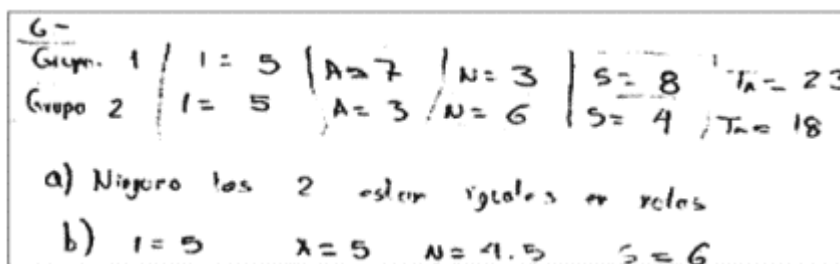 6-
Grupo 1 | I = 5 | A = 7 | N = 3 | S = 8 | Ta = 23
Grupo 2 | I = 5 | A = 3 | N = 6 | S = 4 | Ta = 18
a) Ninguno los 2 estan iguales en
b) I = 5 A = 5 N = 4.5 S = 6